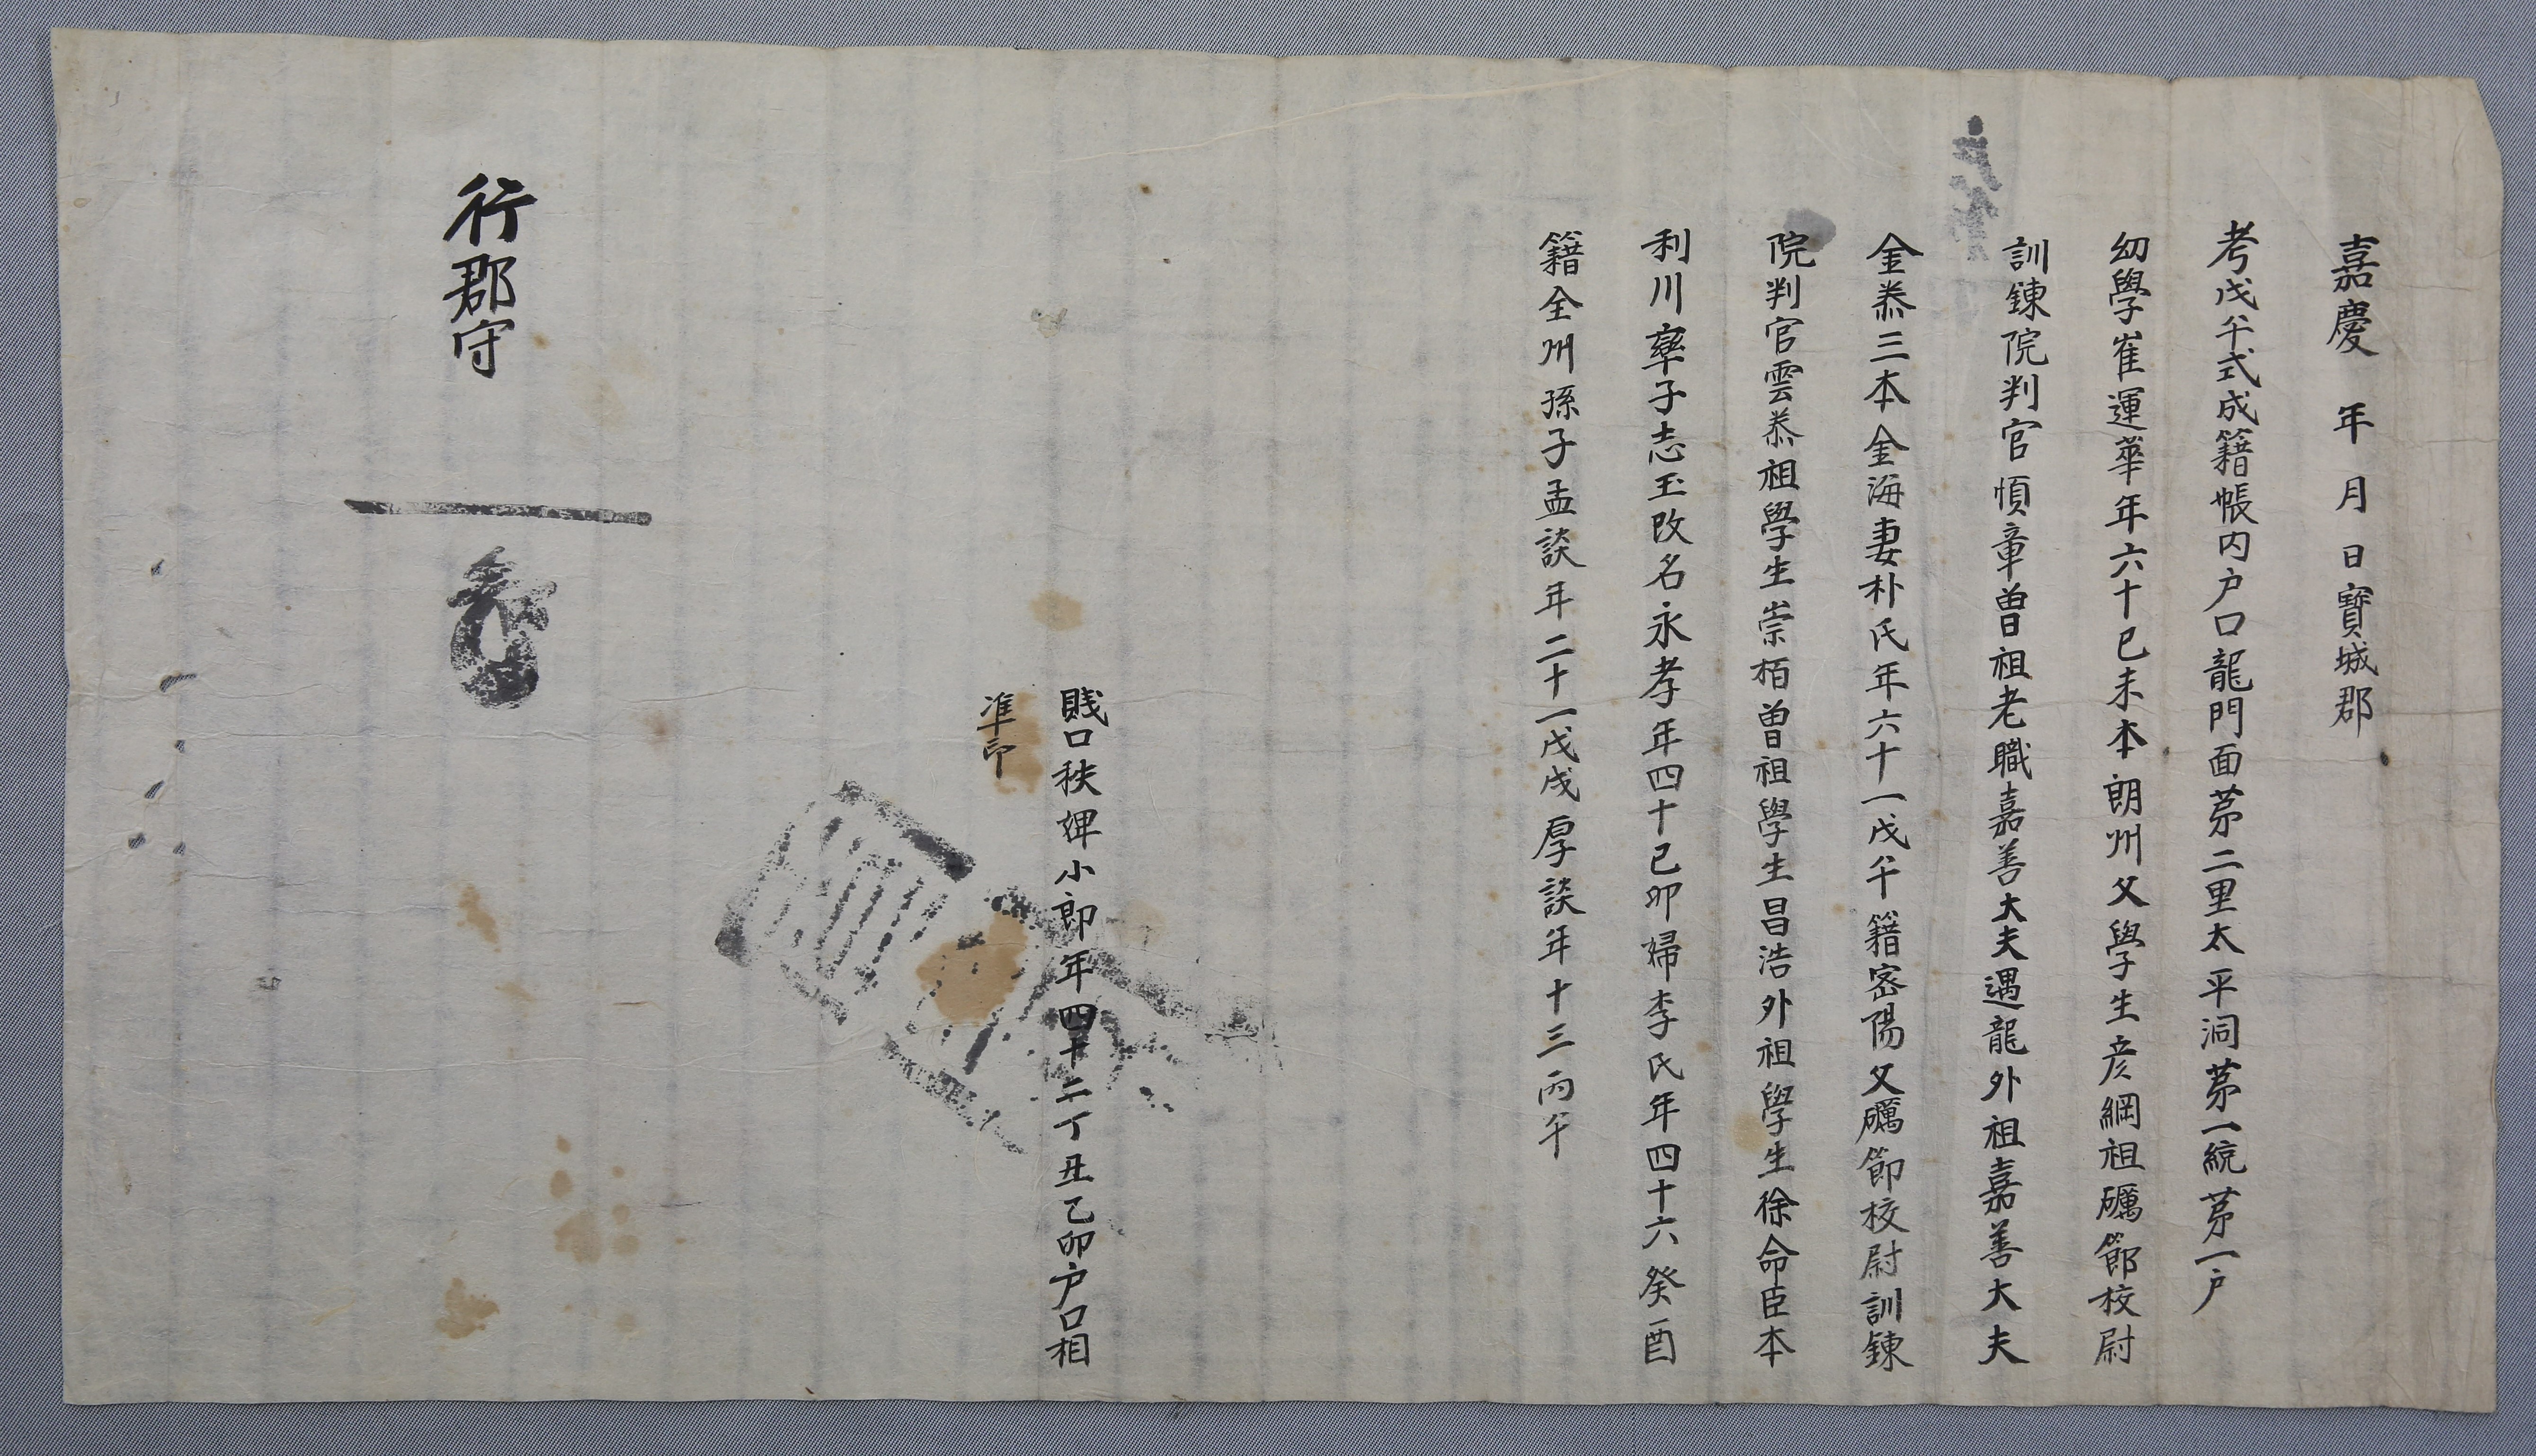 嘉慶 年 月 日 寶城郡
考戊午式成籍帳内户口龍門面茅二里太平洞茅一統茅一户
幼學崔運華年六十己未本朗州父學生彦綱祖礪節校尉
訓鍊院判官愼章曽祖老職嘉善大夫遇龍外祖嘉善大夫
金㤠三本金海妻朴氏年六十一戊午籍宻陽父礪節校尉訓鍊
院判官雲㤠祖學生崇栢曽祖學生昌浩外祖學生徐命臣本
利川率子志玉改名永孝年四十己卯婦李氏年四十六癸酉
籍全州孫子孟談年二十一戊戌厚談年十三丙午
賤口秩婢小郎年四十二丁丑乙卯户口相
準印
行郡守